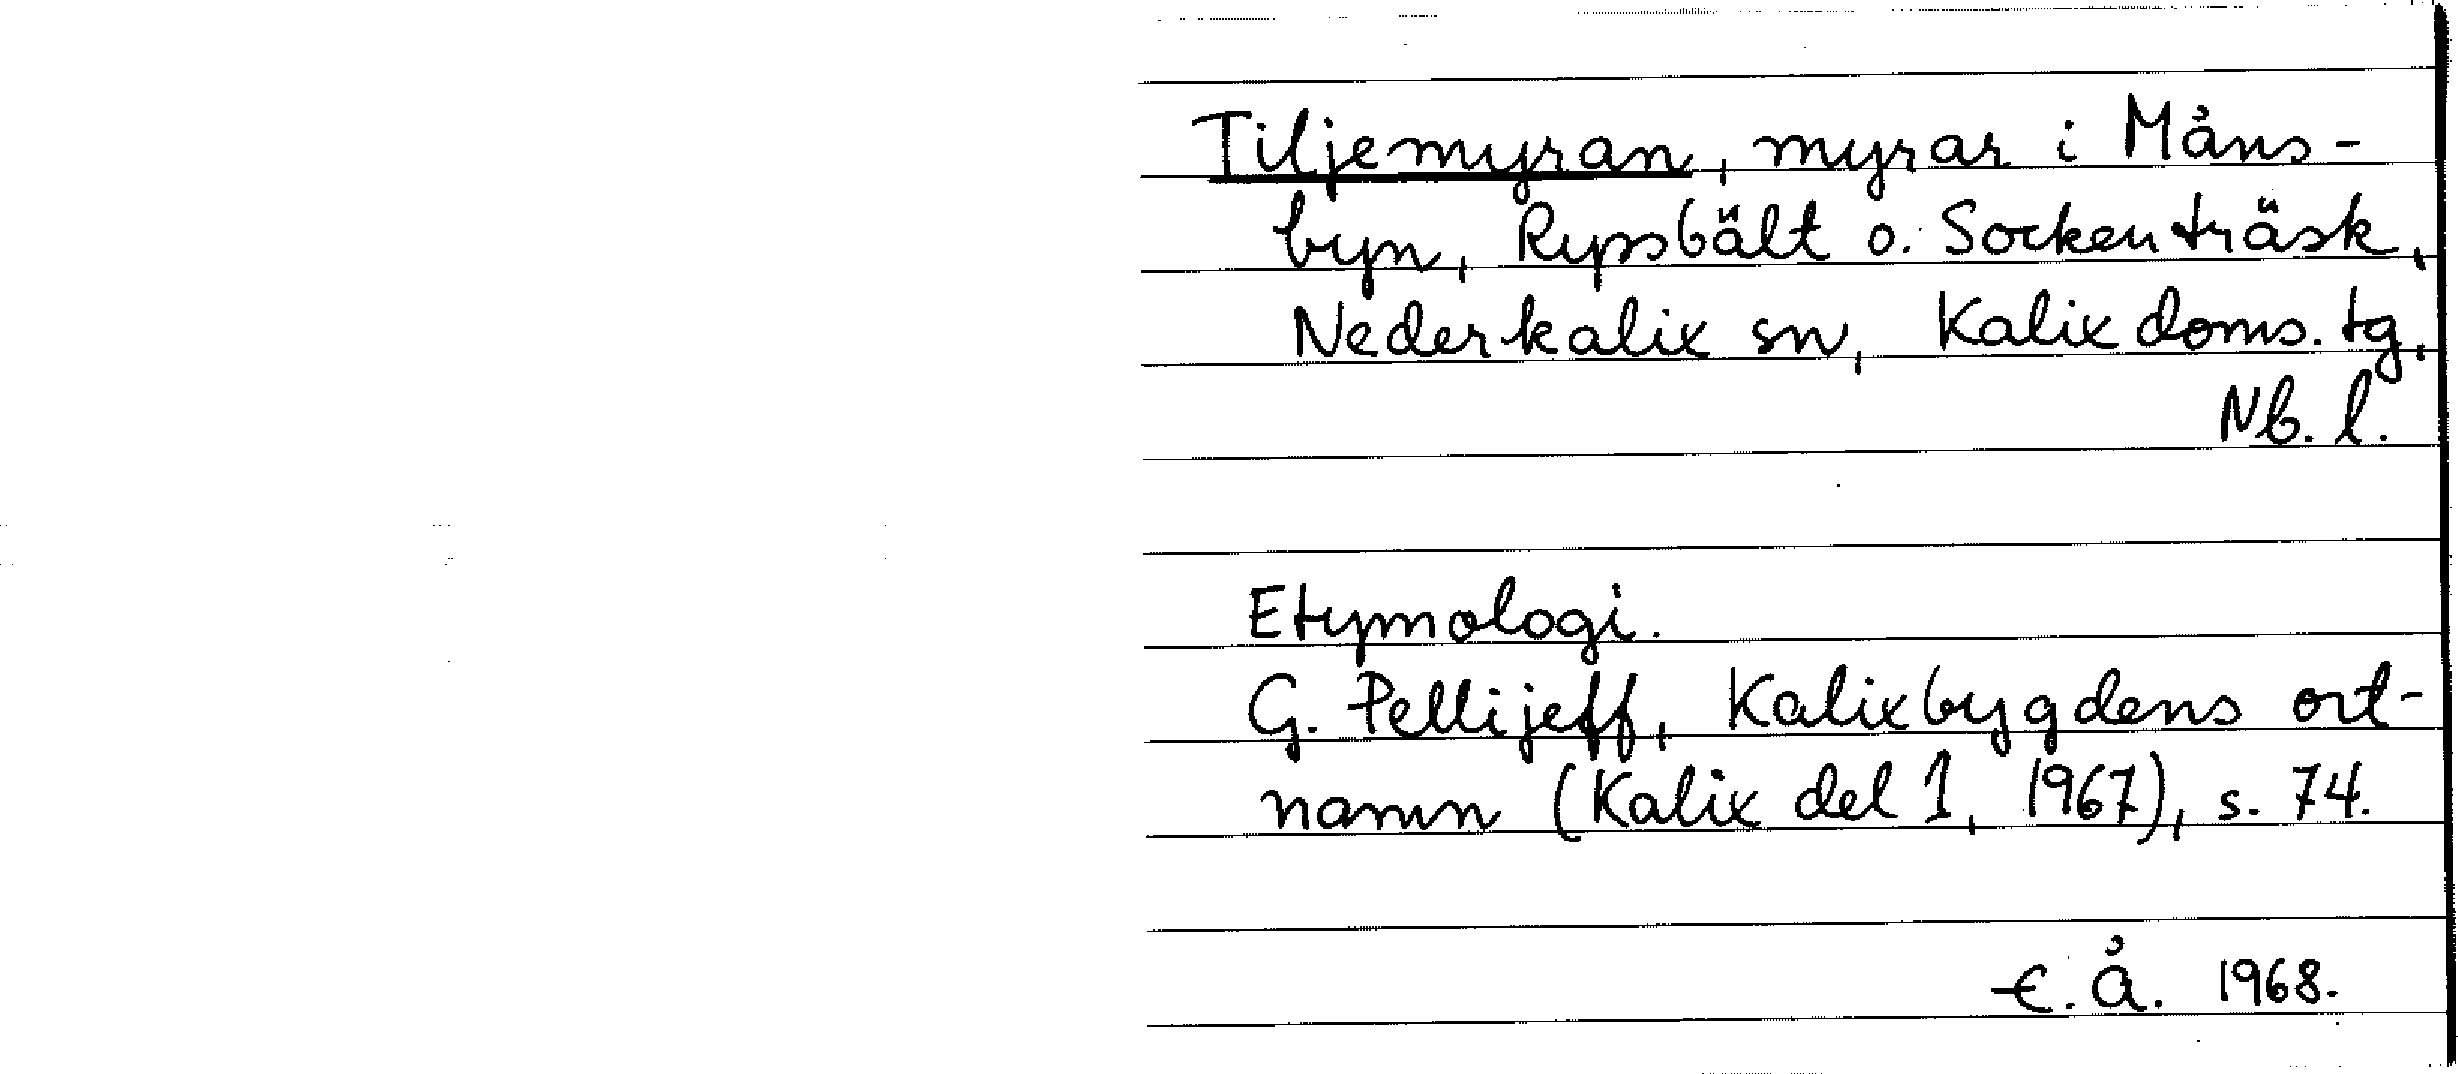 Tiljemyran, myrar i Måns-
byn, Ryssbält o. Sockenträsk,
Nederkalix sn, Kalix doms. tg,
Nb. l.
Etymologi.
G. Pellijeff, Kalixbygdens ort-
namn (Kalix del 1, 1967), s. 74.
E. Å. 1968.